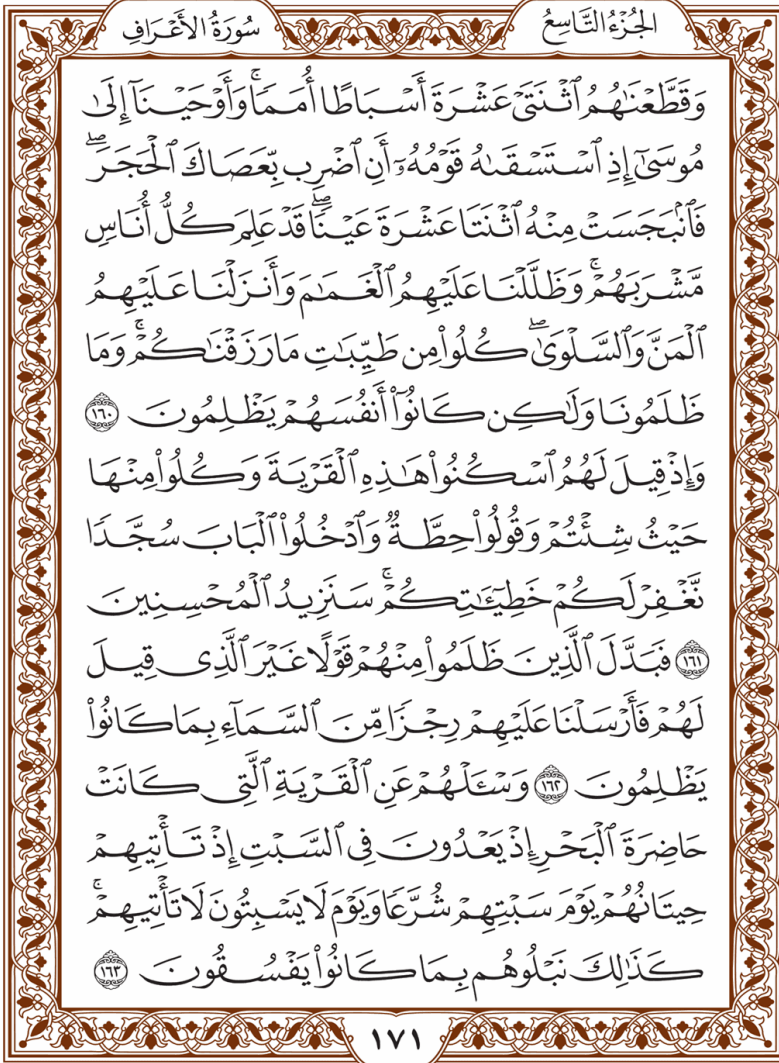 الجُزْءُ التَّاسِعُ سُورَةُ الأَعْرَافِ
وَقَطَّعْنَٰهُمُ ٱثْنَتَىْ عَشْرَةَ أَسْبَاطًا أُمَمًاۚ وَأَوْحَيْنَآ إِلَىٰ
مُوسَىٰٓ إِذِ ٱسْتَسْقَىٰهُ قَوْمُهُۥٓ أَنِ ٱضْرِب بِّعَصَاكَ ٱلْحَجَرَۖ
فَٱنۢبَجَسَتْ مِنْهُ ٱثْنَتَا عَشْرَةَ عَيْنًاۖ قَدْ عَلِمَ كُلُّ أُنَاسٍ
مَّشْرَبَهُمْۚ وَظَلَّلْنَا عَلَيْهِمُ ٱلْغَمَٰمَ وَأَنزَلْنَا عَلَيْهِمُ
ٱلْمَنَّ وَٱلسَّلْوَىٰۖ كُلُوا۟ مِن طَيِّبَٰتِ مَا رَزَقْنَٰكُمْۚ وَمَا
ظَلَمُونَا وَلَٰكِن كَانُوٓا۟ أَنفُسَهُمْ يَظْلِمُونَ ١٦٠
وَإِذْ قِيلَ لَهُمُ ٱسْكُنُوا۟ هَٰذِهِ ٱلْقَرْيَةَ وَكُلُوا۟ مِنْهَا
حَيْثُ شِئْتُمْ وَقُولُوا۟ حِطَّةٌ وَٱدْخُلُوا۟ ٱلْبَابَ سُجَّدًا
نَّغْفِرْ لَكُمْ خَطِيٓـَٰٔتِكُمْۚ سَنَزِيدُ ٱلْمُحْسِنِينَ
١٦١ فَبَدَّلَ ٱلَّذِينَ ظَلَمُوا۟ مِنْهُمْ قَوْلًا غَيْرَ ٱلَّذِى قِيلَ
لَهُمْ فَأَرْسَلْنَا عَلَيْهِمْ رِجْزًا مِّنَ ٱلسَّمَآءِ بِمَا كَانُوا۟
يَظْلِمُونَ ١٦٢ وَسْـَٔلْهُمْ عَنِ ٱلْقَرْيَةِ ٱلَّتِى كَانَتْ
حَاضِرَةَ ٱلْبَحْرِ إِذْ يَعْدُونَ فِى ٱلسَّبْتِ إِذْ تَأْتِيهِمْ
حِيتَانُهُمْ يَوْمَ سَبْتِهِمْ شُرَّعًا وَيَوْمَ لَا يَسْبِتُونَ لَا تَأْتِيهِمْۚ
كَذَٰلِكَ نَبْلُوهُم بِمَا كَانُوا۟ يَفْسُقُونَ ١٦٣
١٧١